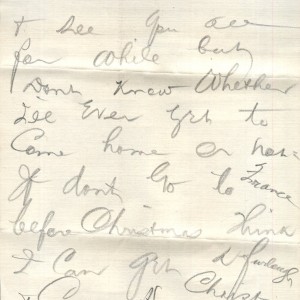 & see you all
for while but
Dont Know Whether
I'll Ever get to
Come home or not
If dont Go to France
before Christmas think
I Can get a furlough